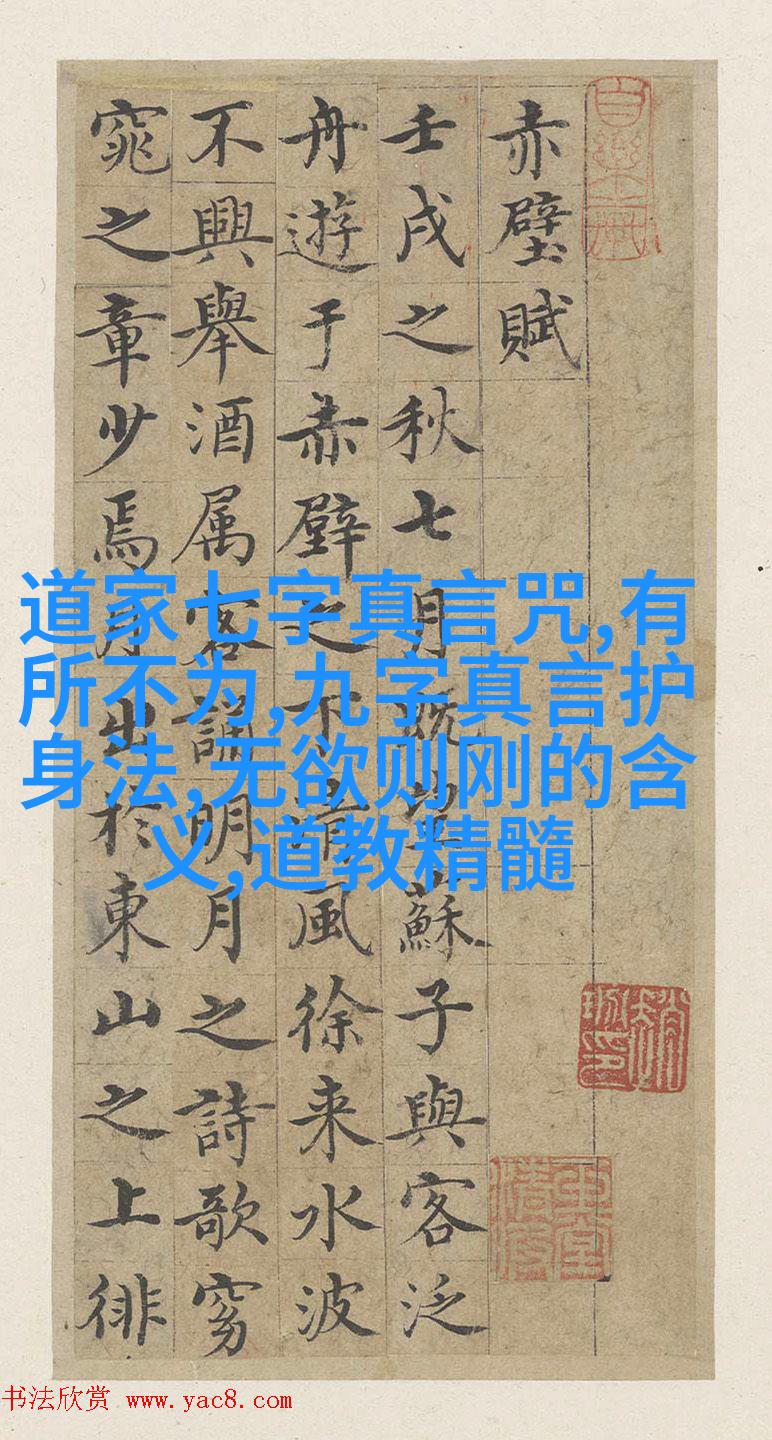 赤壁賦
壬戌之秋七月既望蘇子與客泛
舟遊于赤壁之下清風徐来水波
不興舉酒属客誦明月之詩歌窈
窕之章少焉月出於東山之上徘
道家七字真言咒,有
所不为,九字真言护
身法,无欲则刚的含
义,道教精髓
书法欣赏 www.yac8.com